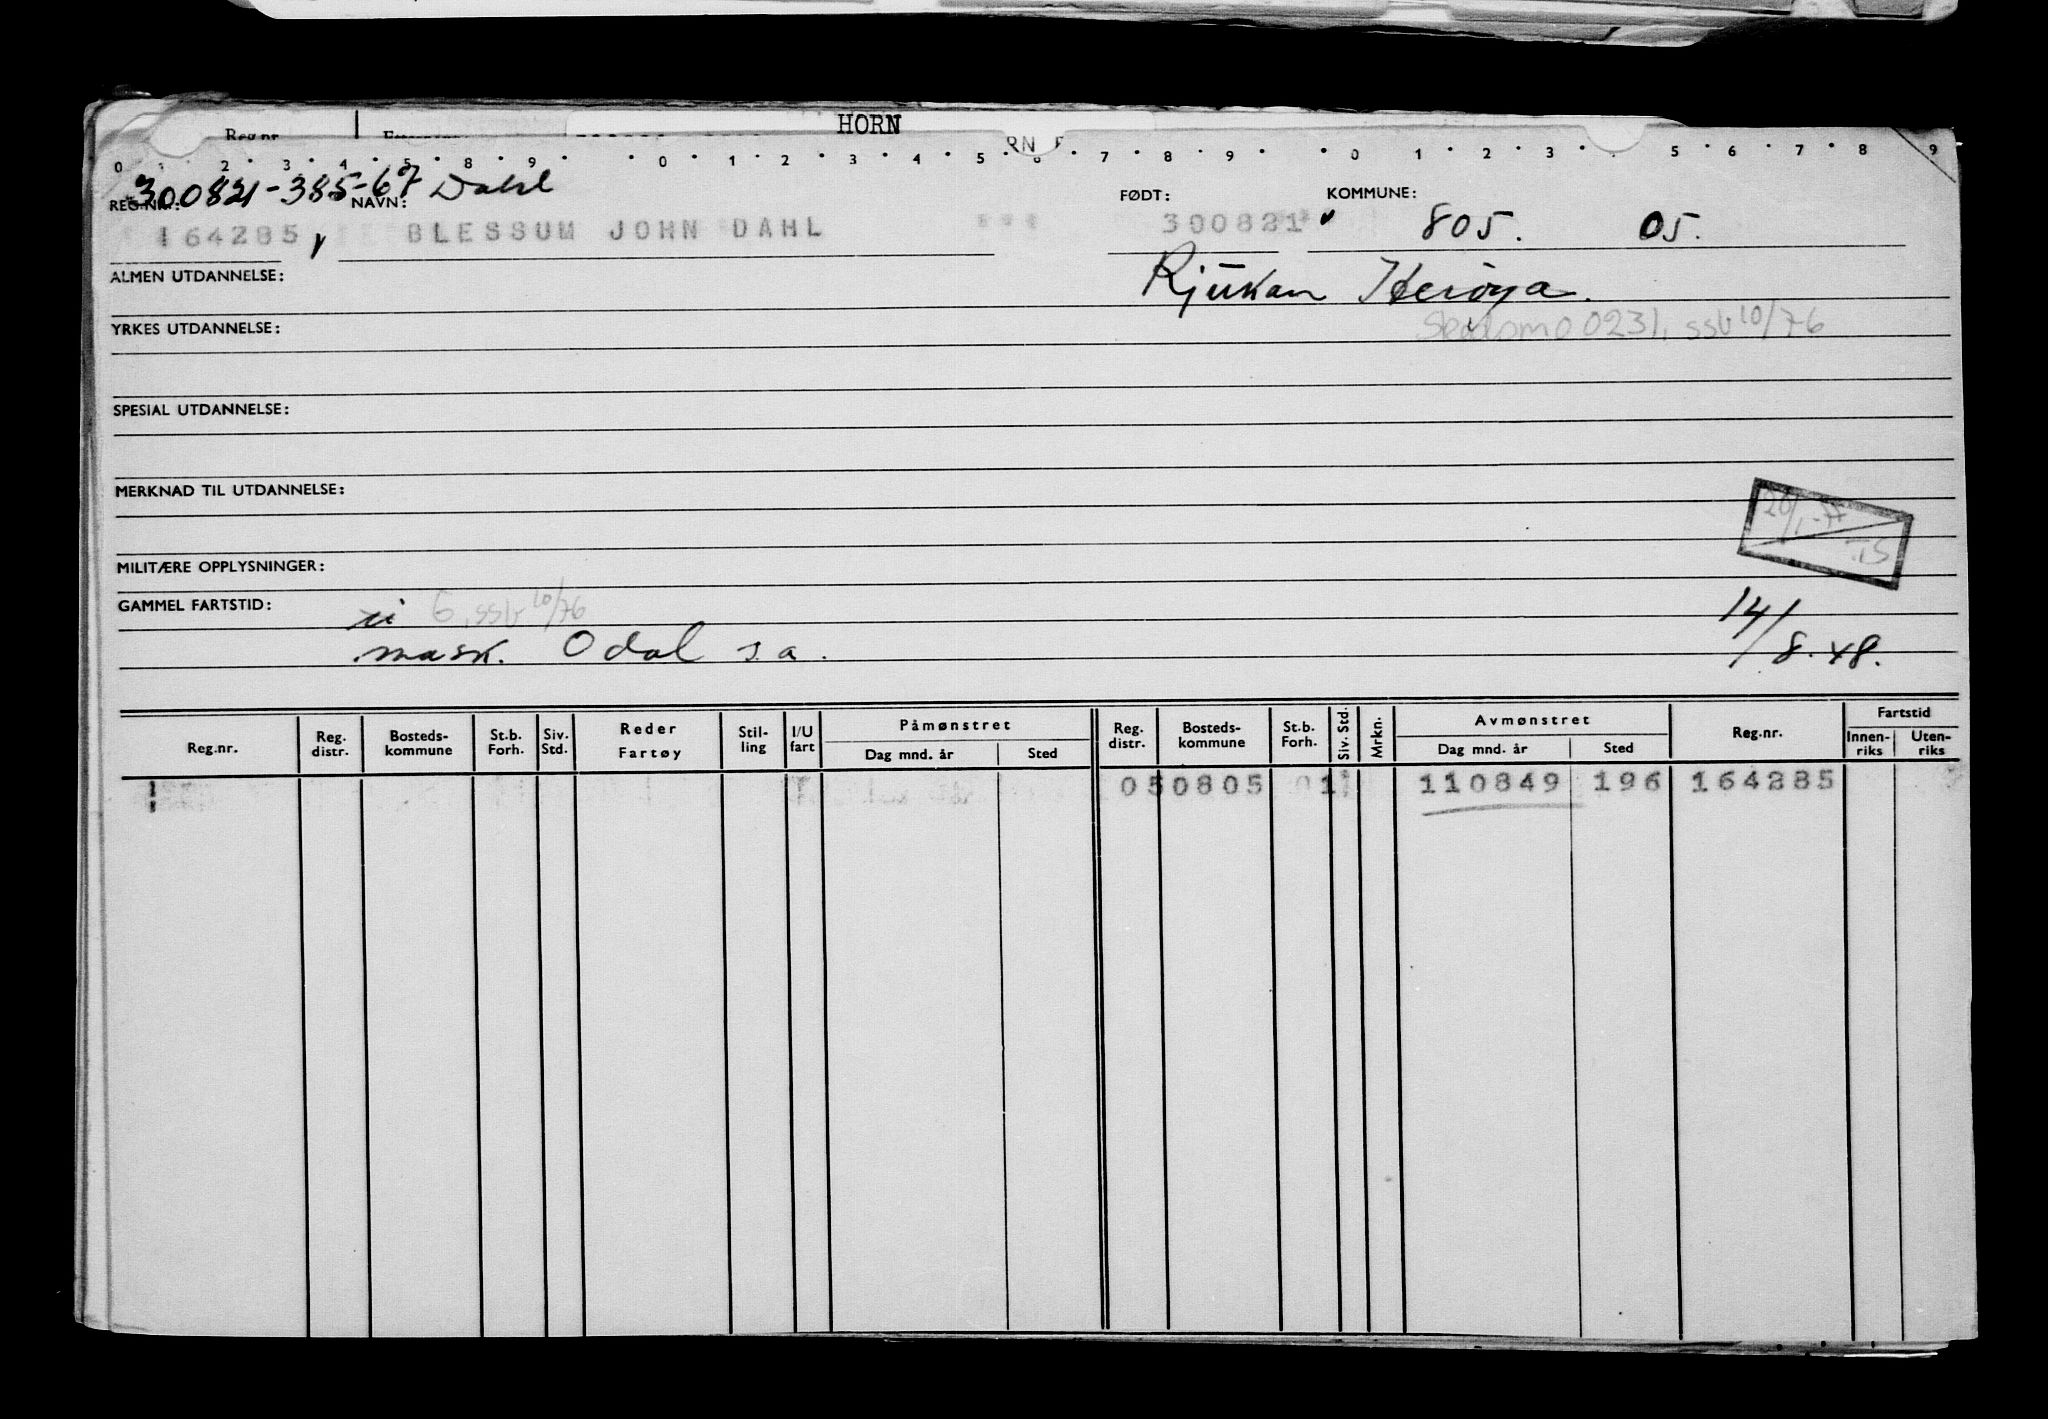 HORN
Reg.nr.
0 2 3 4 5 8 9 0 1 2 3 4 5 6 7 8 9 0 1 2 3 5 6 7 8 9
300821-385-67 Dahl
REG.NR.: NAVN: FØDT: KOMMUNE:
164285 BLESSUM JOHN DAHL *** 300821 805. 05.
ALMEN UTDANNELSE: Rjukan Herøya.
YRKES UTDANNELSE: Skedsmo 0231, ssb 10/76
SPESIAL UTDANNELSE:
MERKNAD TIL UTDANNELSE:
20/1-77
TS
MILITÆRE OPPLYSNINGER:
GAMMEL FARTSTID: 6, ssb 10/76
mask. Odal s.a. 14/8.48.
Reg.nr. Reg. distr. Bosteds-kommune St.b. Forh. Siv. Std. Reder Fartøy Stil-ling I/U fart Påmønstret Dag mnd. år Sted Reg. distr. Bosteds-kommune St.b. Forh. Siv. Std. Mrkn. Avmønstret Dag mnd. år Sted Reg.nr. Fartstid Innen-riks Uten-riks
050805 01 110849 196 164285